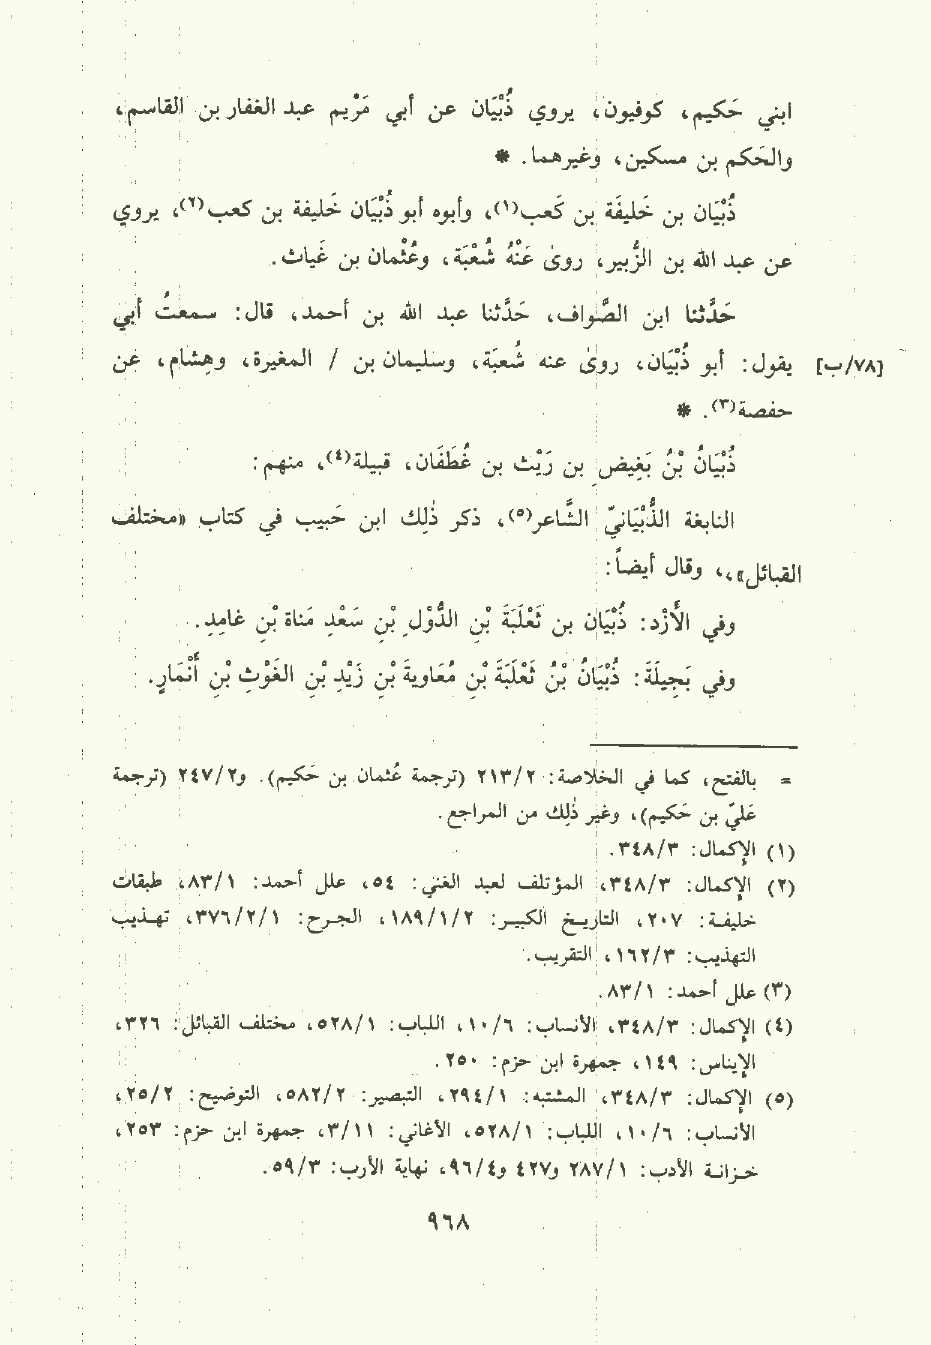 ابني حَكيم، كوفيون، يروي ذُبْيَان عن أبي مَرْيم عبد الغفار بن القاسم،
والحَكم بن مسكين، وغيرهما. *
ذُبْيَان بن خَليفَة بن كَعب(١)، وأبوه أبو ذُبْيَان خَليفة بن كعب(٢)، يروي
عن عبد الله بن الزُّبير، روىٰ عَنْهُ شُعْبَة، وعُثْمان بن غَياث.
حَدَّثنا ابن الصَّواف، حَدَّثنا عبد الله بن أحمد، قال: سمعتُ أبي
[٧٨/ب] يقول: أبو ذُبْيَان، روىٰ عنه شُعبَة، وسليمان بن / المغيرة، وهِشام، عَن
حفصة(٣). *
ذُبْيَانُ بْنُ بَغِيضِ بن رَيْث بن غَطَفَان، قبيلة(٤)، منهم:
النابغة الذُّبْيَانيّ الشَّاعر(٥)، ذكر ذٰلِك ابن حَبيب في كتاب «مختلف
القبائل»،، وقال أيضاً:
وفي الأَزْد: ذُبْيَان بن ثَعْلَبَةَ بْنِ الدُّوْلِ بْنِ سَعْدِ مَناة بْنِ غامِدِ.
وفي بَجِيلَةَ: ذُبْيَانُ بْنُ ثَعْلَبَةَ بْنِ مُعَاويةَ بْنِ زَيْدِ بْنِ الغَوْثِ بْنِ أَنْمَارٍ.
= بالفتح، كما في الخلاصة: ٢١٣/٢ (ترجمة عُثمان بن حَكيم). و٢٤٧/٢ (ترجمة
عَليّ بن حَكيم)، وغير ذٰلِك من المراجع.
(١) الإكمال: ٣٤٨/٣.
(٢) الإكمال: ٣٤٨/٣، المؤتلف لعبد الغني: ٥٤، علل أحمد: ٨٣/١، طبقات
خليفة: ٢٠٧، التاريخ الكبير: ١٨٩/١/٢، الجرح: ٣٧٦/٢/١، تهذيب
التهذيب: ١٦٢/٣، التقريب.
(٣) علل أحمد: ٨٣/١.
(٤) الإكمال: ٣٤٨/٣، الأنساب: ١٠/٦، اللباب: ٥٢٨/١، مختلف القبائل: ٣٢٦،
الإيناس: ١٤٩، جمهرة ابن حزم: ٢٥٠.
(٥) الإكمال: ٣٤٨/٣، المشتبه: ٢٩٤/١، التبصير: ٥٨٢/٢، التوضيح: ٢٥/٢،
الأنساب: ١٠/٦، اللباب: ٥٢٨/١، الأغاني: ٣/١١، جمهرة ابن حزم: ٢٥٣،
خزانة الأدب: ٢٨٧/١ و٤٢٧ و٩٦/٤، نهاية الأرب: ٥٩/٣.
٩٦٨